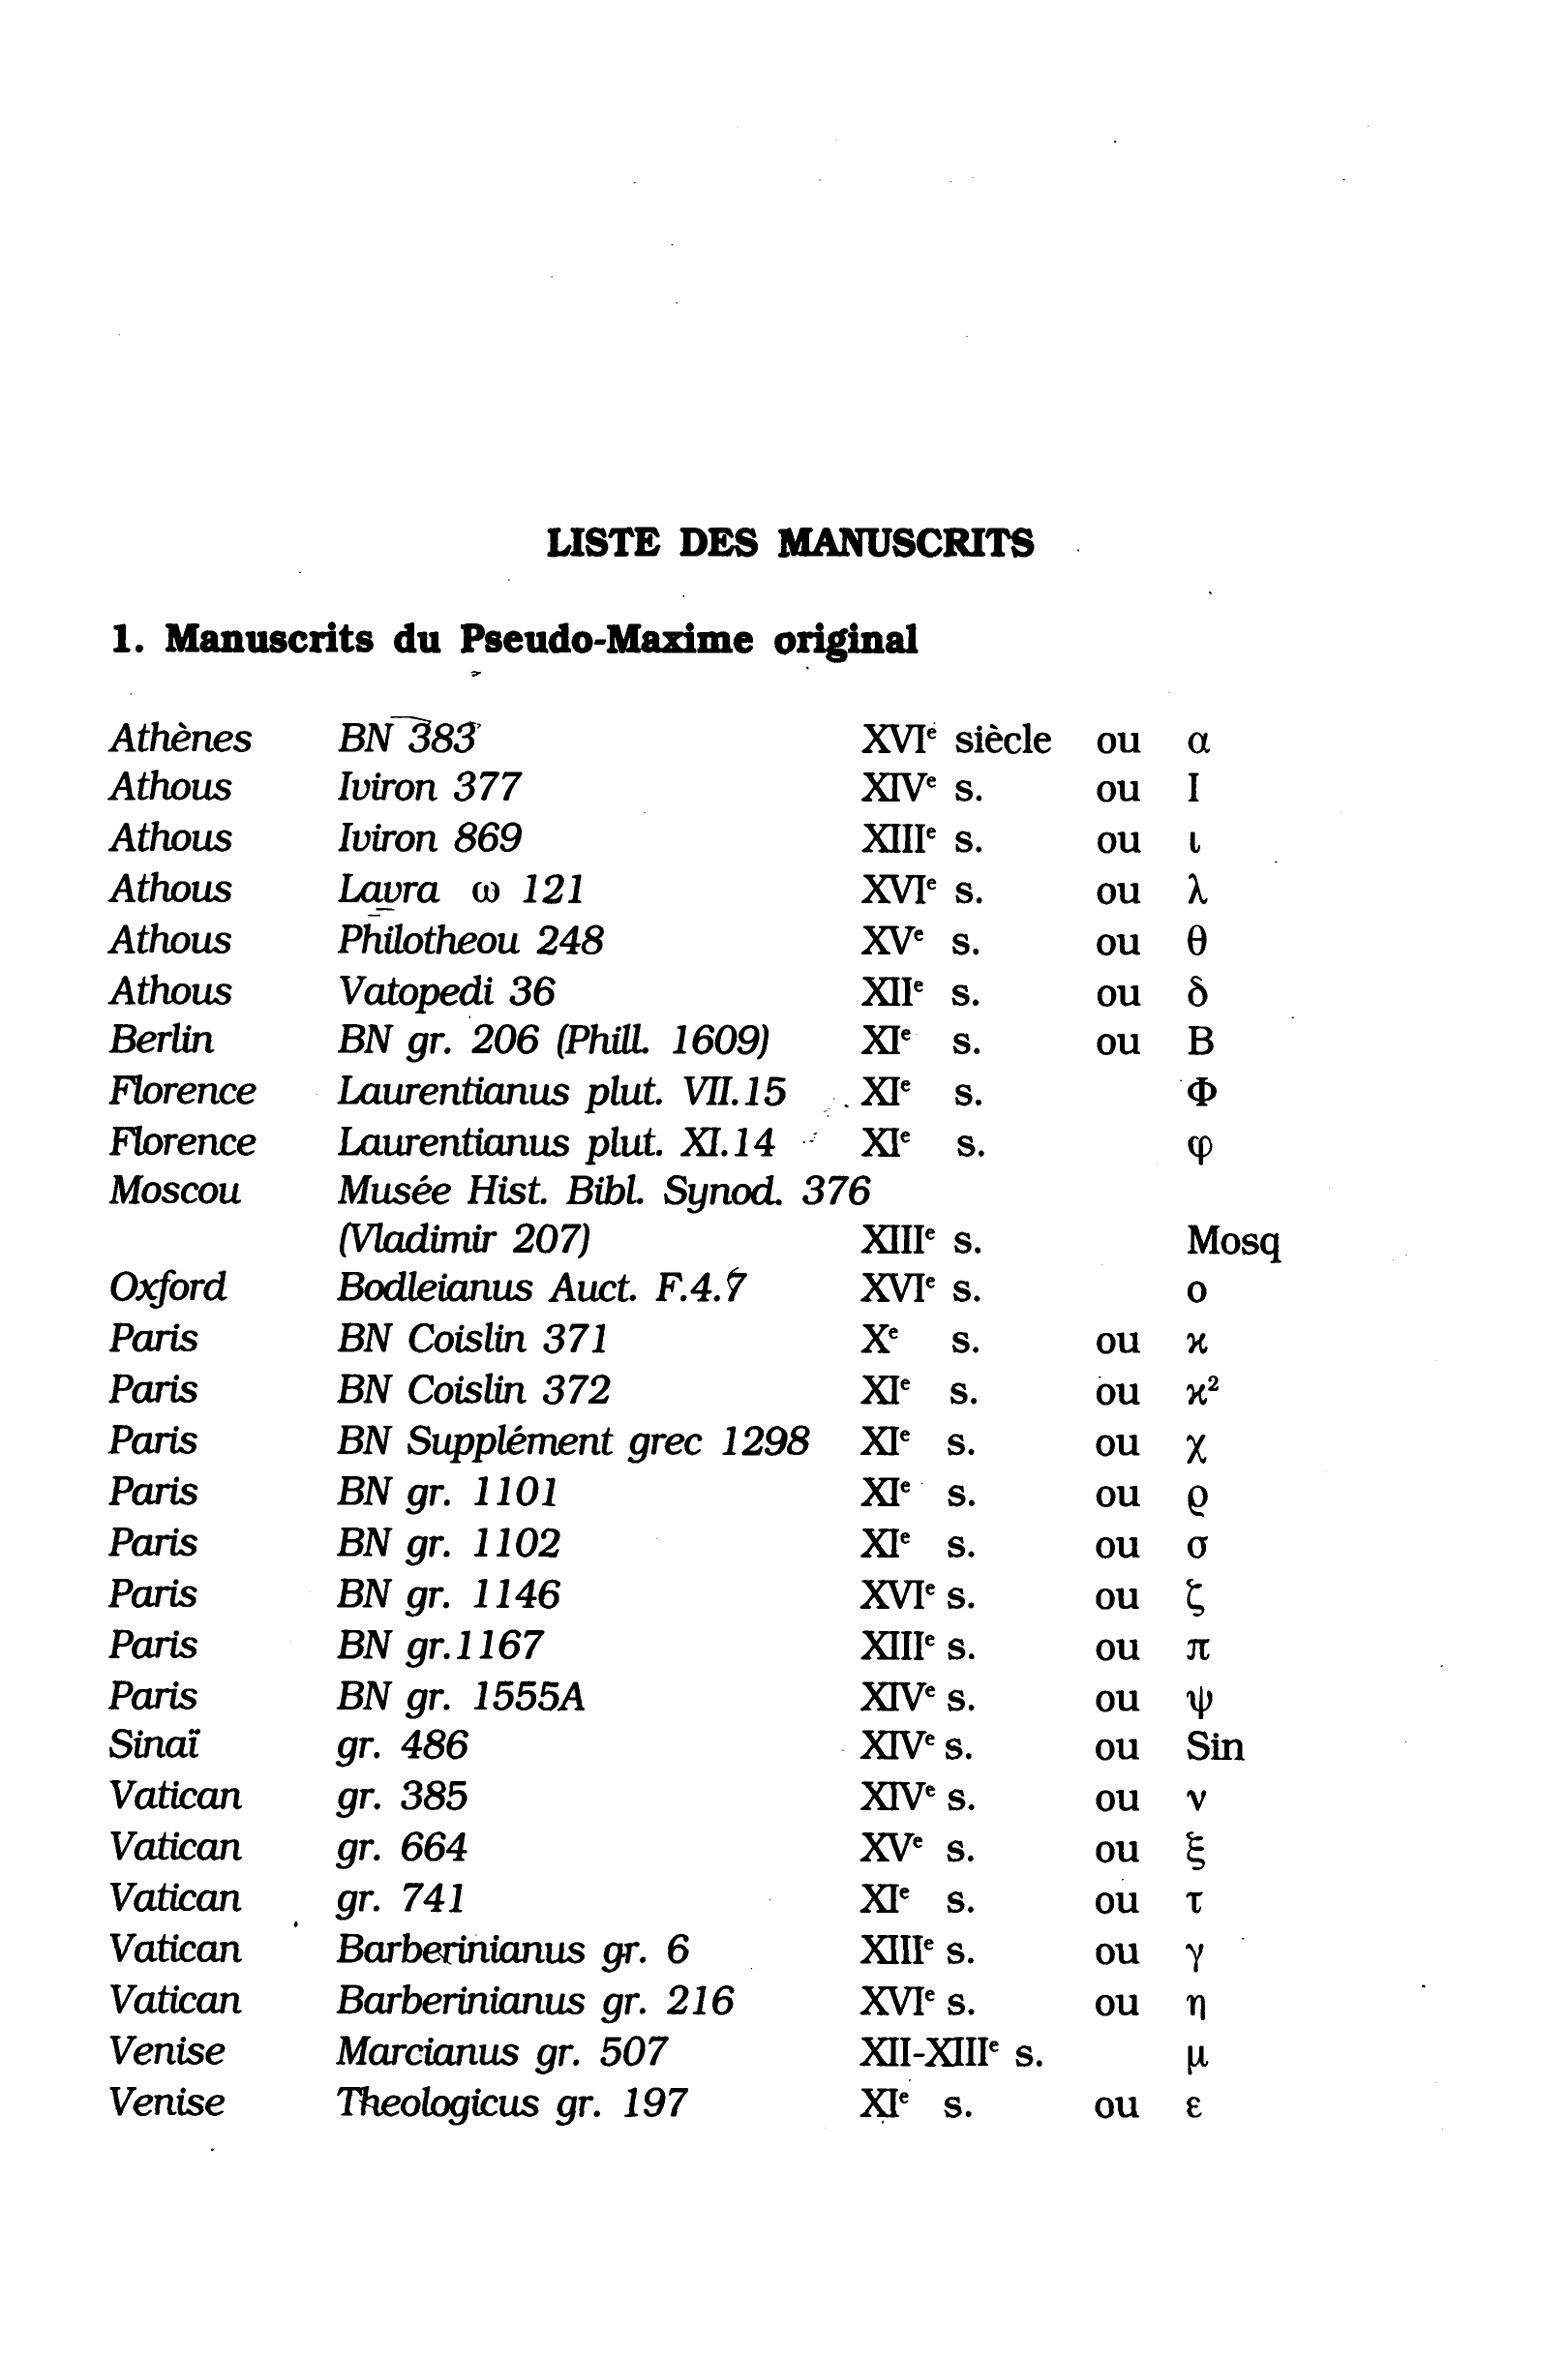 LISTE DES MANUSCRITS
1. Manuscrits du Pseudo-Maxime original
Athènes BN 383 XVIᵉ siècle ou α
Athous Iviron 377 XIVᵉ s. ou I
Athous Iviron 869 XIIIᵉ s. ou ι
Athous Lavra ω 121 XVIᵉ s. ou λ
Athous Philotheou 248 XVᵉ s. ou θ
Athous Vatopedi 36 XIIᵉ s. ou δ
Berlin BN gr. 206 (Phill. 1609) XIᵉ s. ou B
Florence Laurentianus plut. VII.15 XIᵉ s. Φ
Florence Laurentianus plut. XI.14 XIᵉ s. φ
Moscou Musée Hist. Bibl. Synod. 376
(Vladimir 207) XIIIᵉ s. Mosq
Oxford Bodleianus Auct. F.4.7 XVIᵉ s. o
Paris BN Coislin 371 Xᵉ s. ou ϰ
Paris BN Coislin 372 XIᵉ s. ou ϰ²
Paris BN Supplément grec 1298 XIᵉ s. ou χ
Paris BN gr. 1101 XIᵉ s. ou ϱ
Paris BN gr. 1102 XIᵉ s. ou σ
Paris BN gr. 1146 XVIᵉ s. ou ζ
Paris BN gr.1167 XIIIᵉ s. ou π
Paris BN gr. 1555A XIVᵉ s. ou ψ
Sinaï gr. 486 XIVᵉ s. ou Sin
Vatican gr. 385 XIVᵉ s. ou ν
Vatican gr. 664 XVᵉ s. ou ξ
Vatican gr. 741 XIᵉ s. ou τ
Vatican Barberinianus gr. 6 XIIIᵉ s. ou γ
Vatican Barberinianus gr. 216 XVIᵉ s. ou η
Venise Marcianus gr. 507 XII-XIIIᵉ s. μ
Venise Theologicus gr. 197 XIᵉ s. ou ε